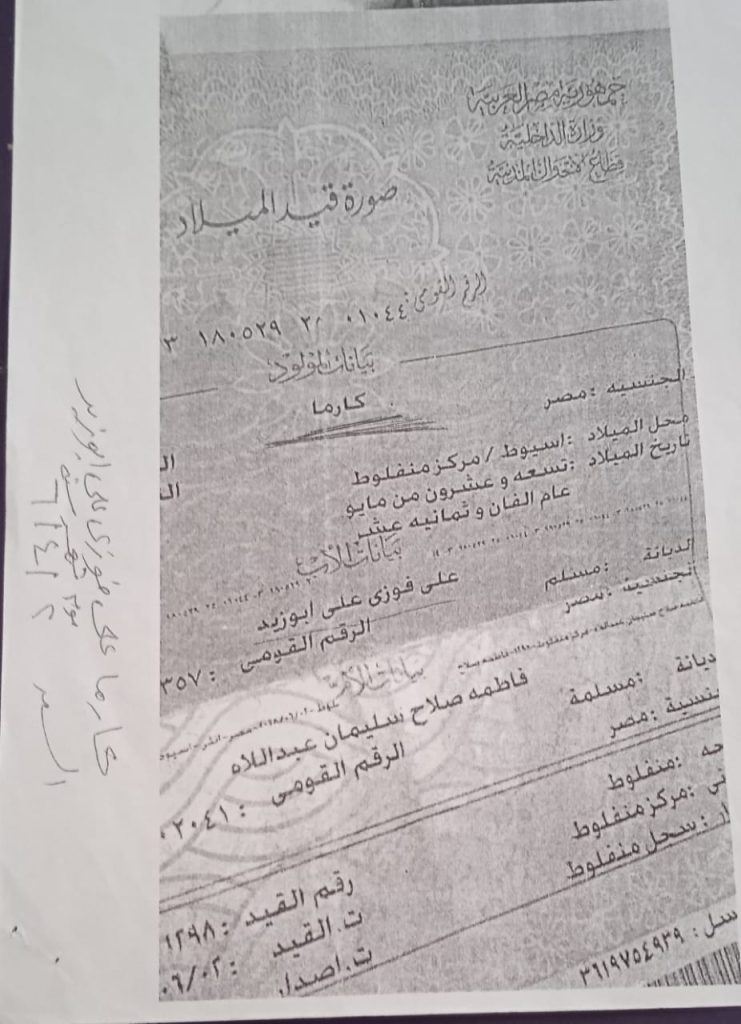 جمهورية مصر العربية
وزارة الداخلية
قطاع الأحوال المدنية
صورة قيد الميلاد
الرقم القومى: ٣ ١٨٠٥٢٩ ٢/ ٠١٠٤٤
بيانات المولود
كارما
الجنسيه :مصر
محل الميلاد :اسيوط / مركز منفلوط
تاريخ الميلاد :تسعه و عشرون من مايو
عام الفان و ثمانيه عشر
بيانات الأب
على فوزى على ابوزيد
الديانة :مسلم
الرقم القومى : ٣٥٧
الجنسية :مصر
بيانات الأم
فاطمه صلاح سليمان عبداللاه
ديانة :مسلمة
الرقم القومى : ٠٢٠٤١
نسية :مصر
حه :منفلوط
ني :مركز منفلوط
ار :سجل منفلوط
رقم القيد : ١٢٩٨
ت.القيد : ٠٦/٠٢
ت.اصدار
سل : ٣٦١٩٧٥٤٩٣٩
كارما على فوزى على ابوزيد